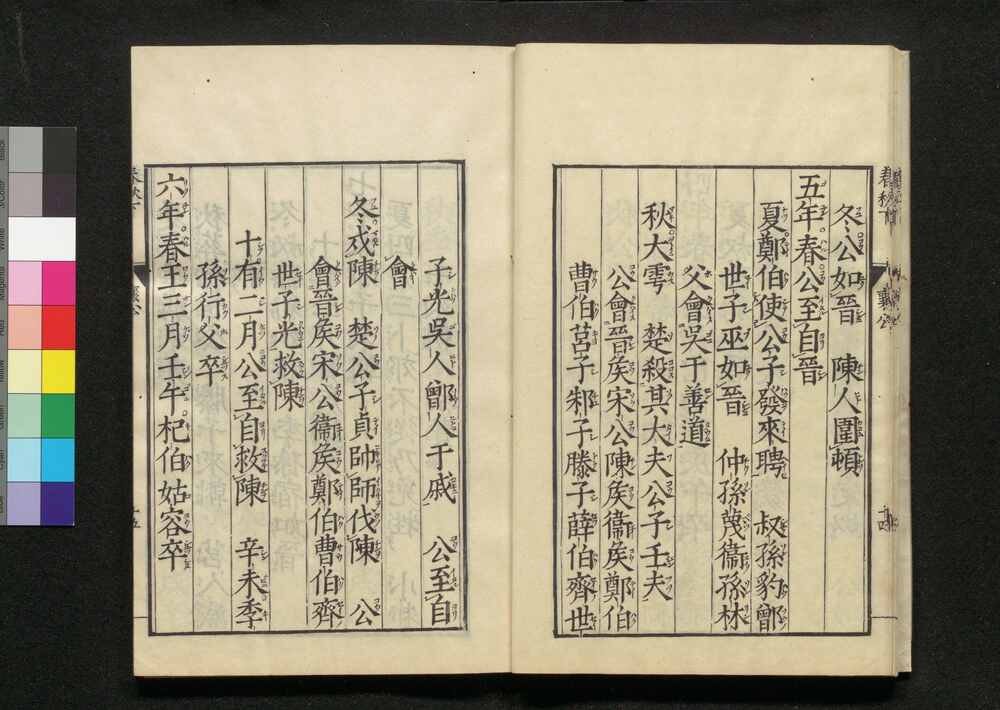 冬公如晉　陳人圍頓
五年春公至自晉
夏鄭伯使公子發來聘　叔孫豹鄫
世子巫如晉　仲孫蔑衞孫林
父會吳于善道
秋大雩　楚殺其大夫公子壬夫
公會晉矦宋公陳矦衞矦鄭伯
曹伯莒子邾子滕子薛伯齊世
子光吳人鄫人于戚　公至自
會
冬戍陳　楚公子貞帥師伐陳　公
會晉矦宋公衞矦鄭伯曹伯齊
世子光救陳
十有二月公至自救陳　辛未季
孫行父卒
六年春王三月壬午杞伯姑容卒